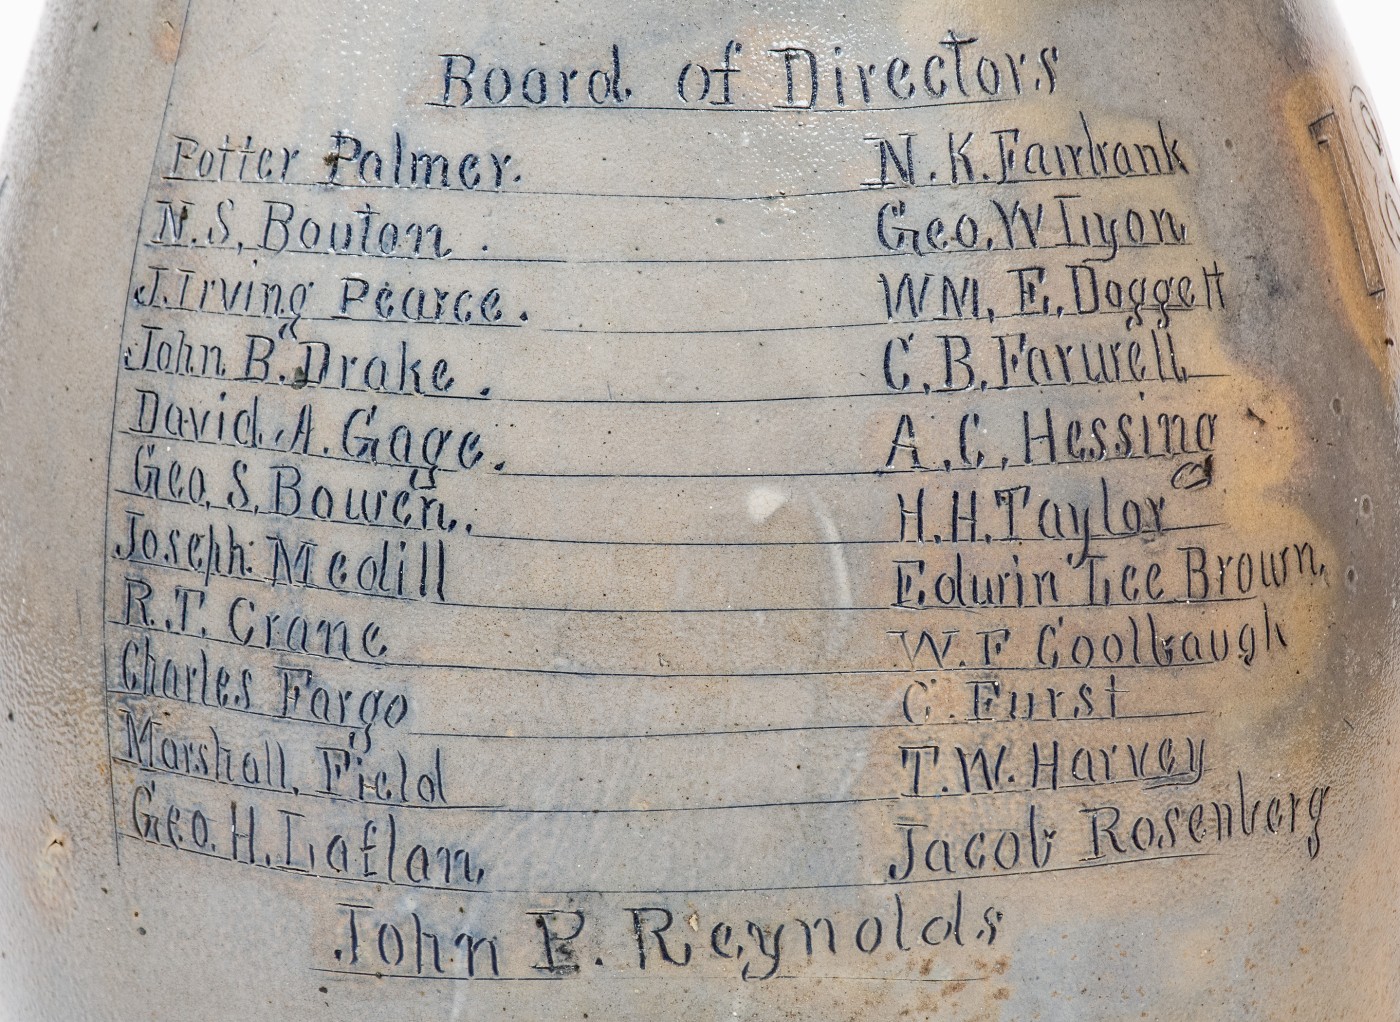 Board of Directors
Potter Palmer. N. K. Fairbank
N. S. Bouton. Geo. W Lyon
J. Irving Pearce. WM. E. Doggett
John B. Drake. C. B. Farwell
David. A. Gage. A. C. Hessing
Geo. S. Bowen. H. H. Taylor
Joseph Medill Edwin Lee Brown.
R. T. Crane W. F Coolbaugh
Charles Fargo C. Furst
Marshall. Field T. W. Harvey
Geo. H. Laflan. Jacob Rosenberg
John P. Reynolds